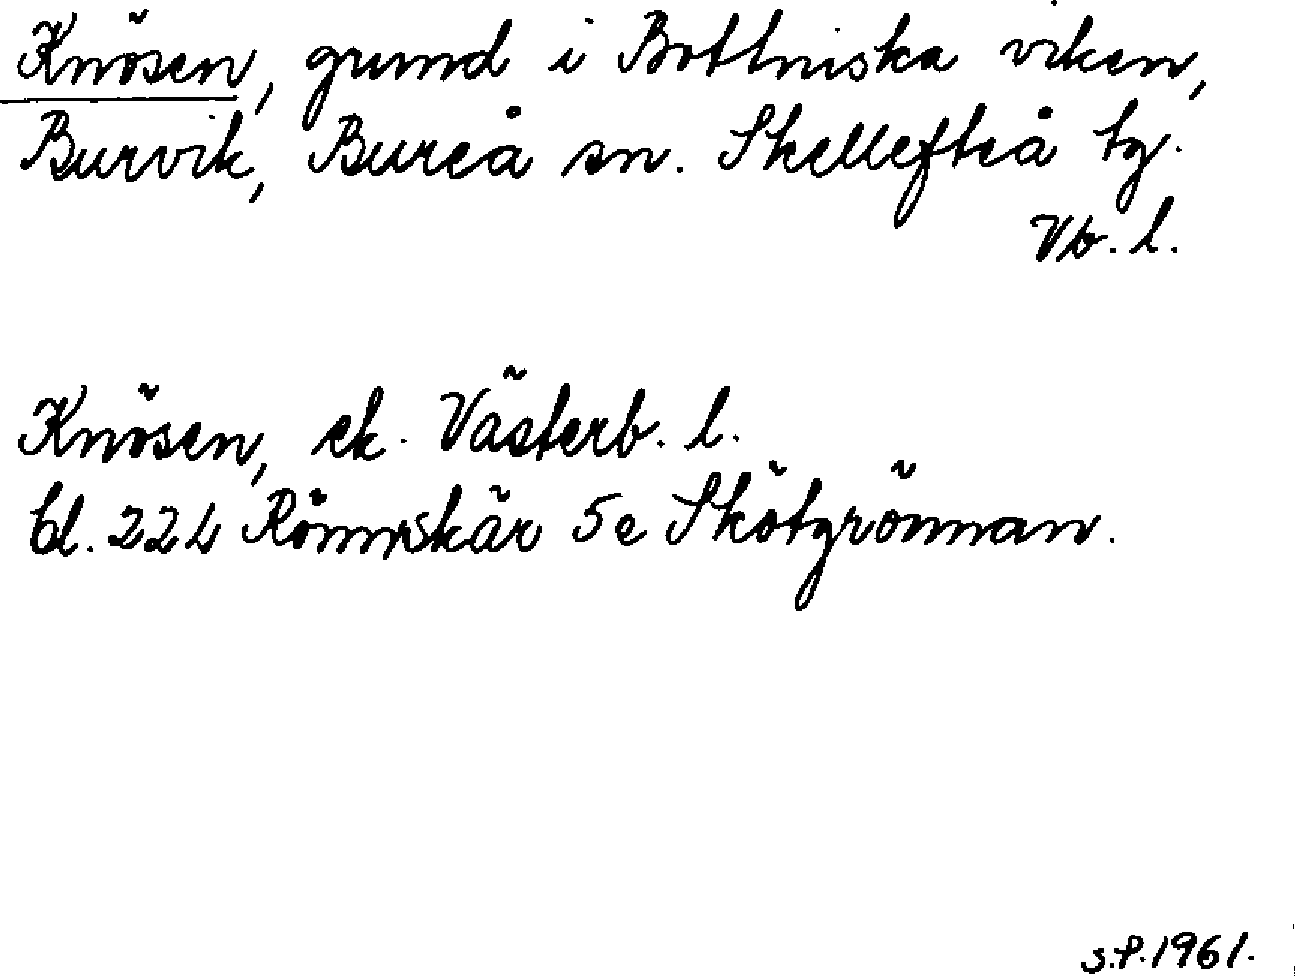 Knösen, grund i Bottniska viken,
Burvik, Bureå sn. Skellefteå tg.
Vb. l.
Knösen, ek. Västerb. l.
bl. 22 L Rönnskär 5e Skötgrönnan.
S.P. 1961.